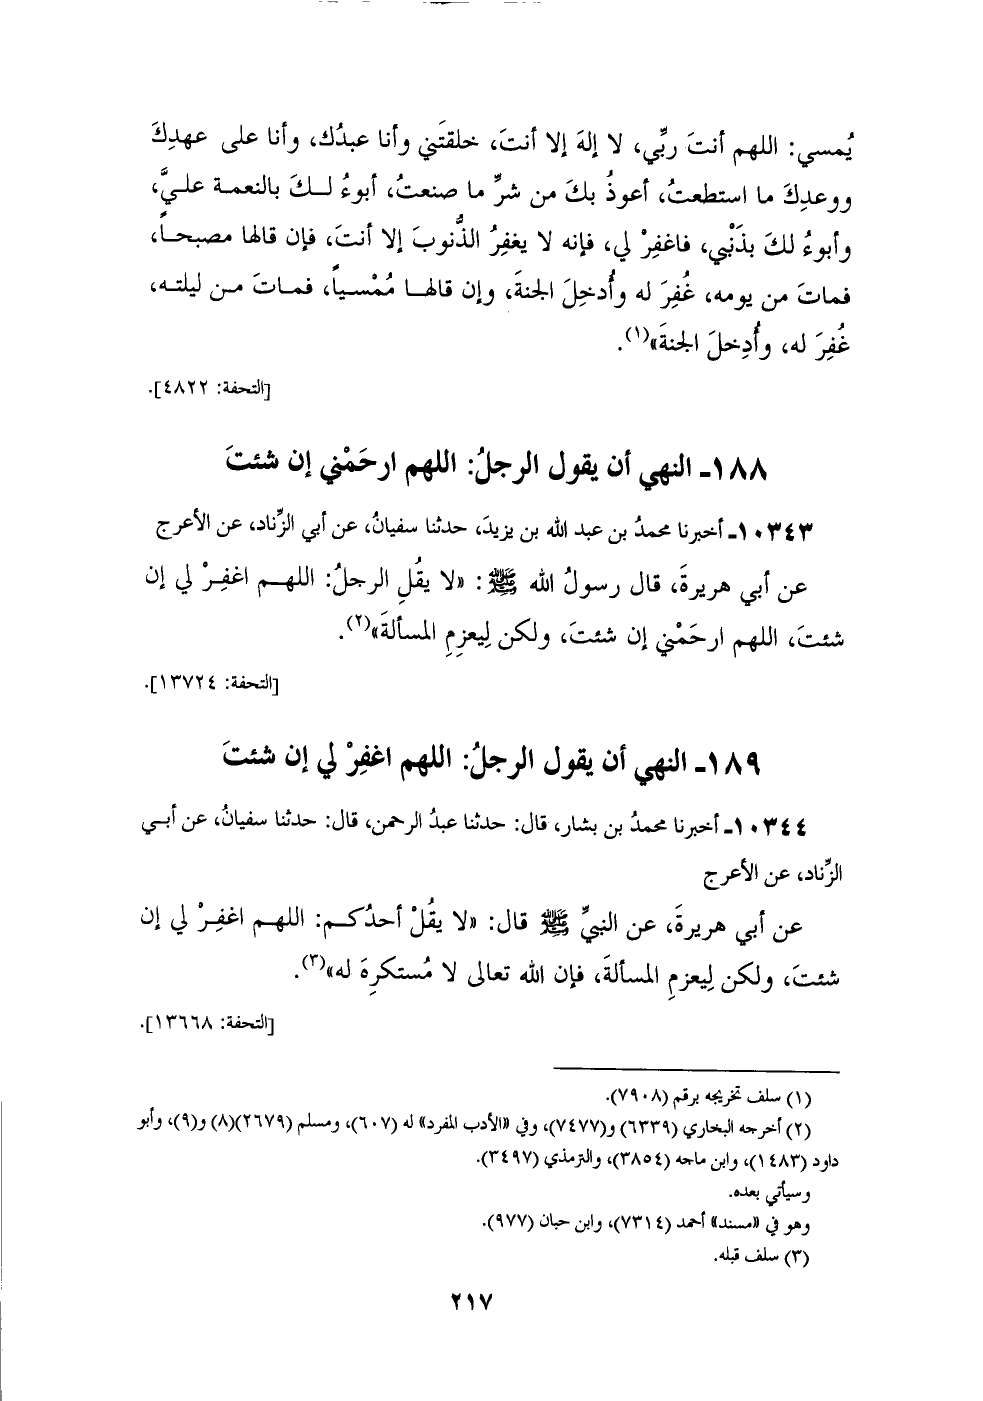 يُمسي: اللهم أنتَ ربِّي، لا إلهَ إلا أنتَ، خلقتَني وأنا عبدُك، وأنا على عهدِكَ
ووعدِكَ ما استطعتُ، أعوذُ بكَ من شرِّ ما صنعتُ، أبوءُ لـكَ بالنعمة عليَّ،
وأبوءُ لكَ بذَنْبي، فاغفِرْ لي، فإنه لا يغفِرُ الذُّنوبَ إلا أنتَ، فإن قالها مصبحاً،
فماتَ من يومه، غُفِرَ له وأُدخِلَ الجنةَ، وإن قالهـا مُمْسـياً، فمـاتَ مـن ليلتـه،
غُفِرَ له، وأُدِخلَ الجنةَ»(١).
[التحفة: ٤٨٢٢].
١٨٨ـ النهي أن يقول الرجلُ: اللهم ارحَمْني إن شئتَ
١٠٣٤٣ـ أخبرنا محمدُ بن عبد الله بن يزيدَ، حدثنا سفيانُ، عن أبي الزِّناد، عن الأعرج
عن أبي هريرةَ، قال رسولُ الله ﷺ: «لا يقُلِ الرجلُ: اللهـم اغفِـرْ لي إن
شئتَ، اللهم ارحَمْني إن شئتَ، ولكن لِيعزِمِ المسألةَ»(٢).
[التحفة: ١٣٧٢٤].
١٨٩ـ النهي أن يقول الرجلُ: اللهم اغفِرْ لي إن شئتَ
١٠٣٤٤ـ أخبرنا محمدُ بن بشار، قال: حدثنا عبدُ الرحمن، قال: حدثنا سفيانُ، عن أبـي
الزِّناد، عن الأعرج
عن أبي هريرةَ، عن النبيِّ ﷺ قال: «لا يقُلْ أحدُكـم: اللهـم اغفِـرْ لي إن
شئتَ، ولكن لِيعزمِ المسألةَ، فإن الله تعالى لا مُستكرِهَ له»(٣).
[التحفة: ١٣٦٦٨].
(١) سلف تخريجه برقم (٧٩٠٨).
(٢) أخرجه البخاري (٦٣٣٩) و(٧٤٧٧)، وفي «الأدب المفرد» له (٦٠٧)، ومسلم (٢٦٧٩)(٨) و(٩)، وأبو
داود (١٤٨٣)، وابن ماجه (٣٨٥٤)، والترمذي (٣٤٩٧).
وسيأتي بعده.
وهو في «مسند» أحمد (٧٣١٤)، وابن حبان (٩٧٧).
(٣) سلف قبله.
٢١٧